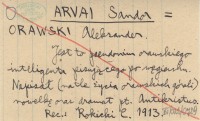 ARVAI Sandor =
ORAWSKI Aleksander.
Jest to pseudonim orawskiego
inteligenta piszącego po węgiersku.
Napisał (na tle życia orawskich górali)
nowelkę oraz dramat pt. Antikristus.
Rec.: Rokicki C. 1913